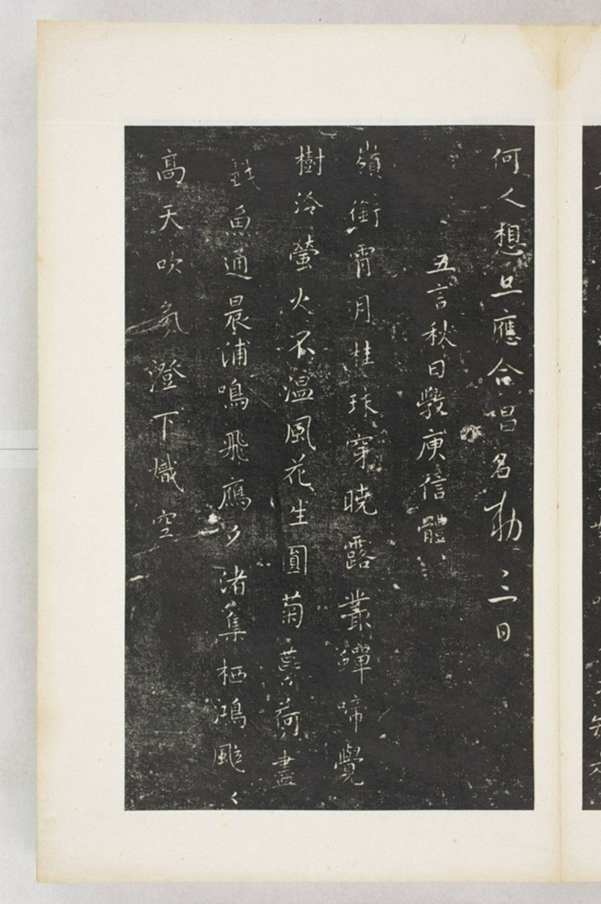 何人想旦應合唱名勅 三日
五言秋日斅庾信體
嶺銜宵月桂珠穿曉露叢蟬啼覺
樹冷螢火不温風花生圓菊蘂荷盡
戲魚通晨浦鳴飛鴈夕渚集栖鴻颯々
高天吹氛澄下熾空